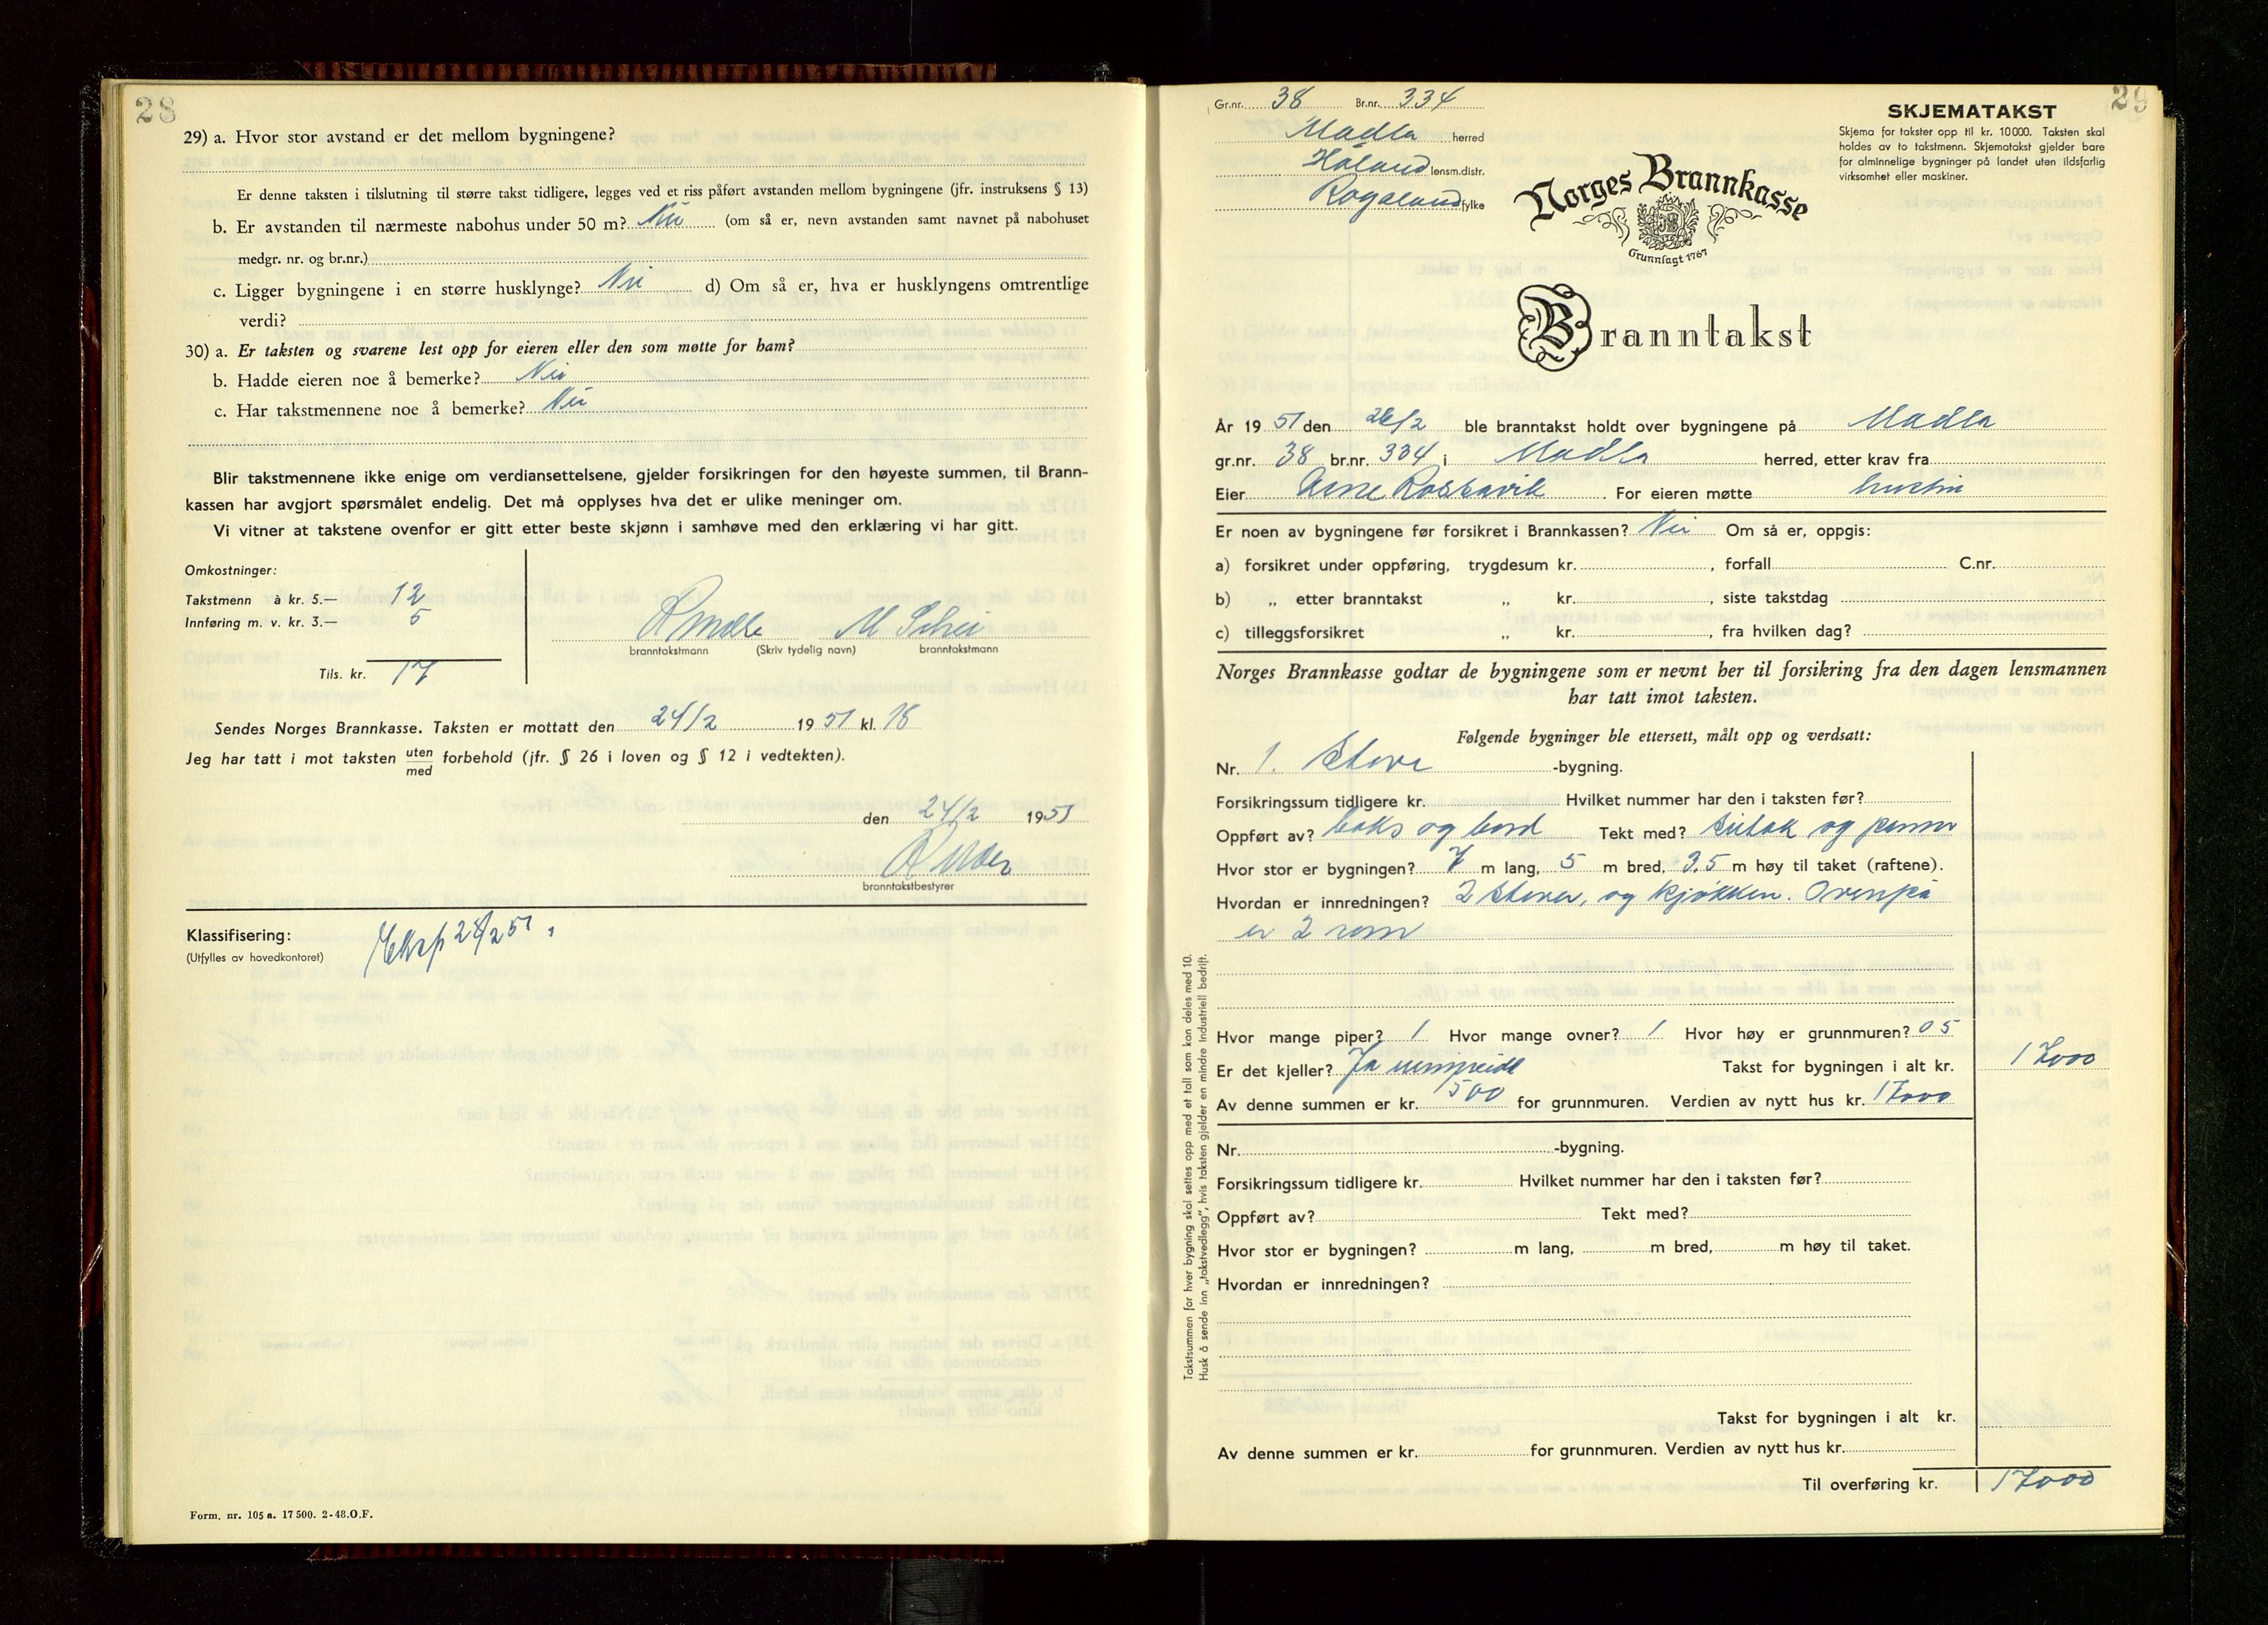 28
29) a. Hvor stor avstand er det mellom bygningene?
Er denne taksten i tilslutning til større takst tidligere, legges ved et riss påført avstanden mellom bygningene (jfr. instruksens § 13)
b. Er avstanden til nærmeste nabohus under 50 m? Nei (om så er, nevn avstanden samt navnet på nabohuset
medgr. nr. og br.nr.)
c. Ligger bygningene i en større husklynge? Nei d) Om så er, hva er husklyngens omtrentlige
verdi?
30) a. Er taksten og svarene lest opp for eieren eller den som møtte for ham?
b. Hadde eieren noe å bemerke? Nei
c. Har takstmennene noe å bemerke? Nei
Blir takstmennene ikke enige om verdiansettelsene, gjelder forsikringen for den høyeste summen, til Brann-
kassen har avgjort spørsmålet endelig. Det må opplyses hva det er ulike meninger om.
Vi vitner at takstene ovenfor er gitt etter beste skjønn i samhøve med den erklæring vi har gitt.
Omkostninger:
Takstmenn à kr. 5.— 12
Innføring m. v. kr. 3.— 5
Tils. kr. 17
branntakstmann (Skriv tydelig navn) branntakstmann
Sendes Norges Brannkasse. Taksten er mottatt den 24/2 1951 kl. 18
Jeg har tatt i mot taksten uten/med forbehold (jfr. § 26 i loven og § 12 i vedtekten).
den 24/2 1951
branntakstbestyrer
Klassifisering:
(Utfylles av hovedkontoret)
Form. nr. 105 a. 17 500. 2-48. O.F.
29
Gr.nr. 38 Br.nr. 334
Madla herred
Håland lensm.distr.
Rogaland fylke
SKJEMATAKST
Skjema for takster opp til kr. 10 000. Taksten skal
holdes av to takstmenn. Skjematakst gjelder bare
for alminnelige bygninger på landet uten ildsfarlig
virksomhet eller maskiner.
Norges Brannkasse
Grunnlagt 1767
Branntakst
År 1951 den 26/2 ble branntakst holdt over bygningene på Madla
gr.nr. 38 br.nr. 334 i Madla herred, etter krav fra
Eier Arne Rossavik . For eieren møtte hustru
Er noen av bygningene før forsikret i Brannkassen? Nei Om så er, oppgis:
a) forsikret under oppføring, trygdesum kr. , forfall C.nr.
b) „ etter branntakst „ kr. , siste takstdag
c) tilleggsforsikret „ kr. , fra hvilken dag?
Norges Brannkasse godtar de bygningene som er nevnt her til forsikring fra den dagen lensmannen
har tatt imot taksten.
Følgende bygninger ble ettersett, målt opp og verdsatt:
Nr. 1. Stove -bygning.
Forsikringssum tidligere kr. Hvilket nummer har den i taksten før?
Oppført av? boks og bord Tekt med? sutak og panner
Hvor stor er bygningen? 7 m lang, 5 m bred, 3.5 m høy til taket (raftene).
Hvordan er innredningen? 2 stover, og kjøkken. Ovenpå
er 2 rom
Hvor mange piper? 1 Hvor mange ovner? 1 Hvor høy er grunnmuren? 05
Er det kjeller? Ja Takst for bygningen i alt kr. 17000
Av denne summen er kr. 500 for grunnmuren. Verdien av nytt hus kr. 17000
Nr. -bygning.
Forsikringssum tidligere kr. Hvilket nummer har den i taksten før?
Oppført av? Tekt med?
Hvor stor er bygningen? m lang, m bred, m høy til taket.
Hvordan er innredningen?
Takst for bygningen i alt kr.
Av denne summen er kr. for grunnmuren. Verdien av nytt hus kr.
Til overføring kr. 17000
Takstsummen for hver bygning skal settes opp med et tall som kan deles med 10.
Husk å sende inn „takstvedlegg", hvis taksten gjelder en mindre industriell bedrift.